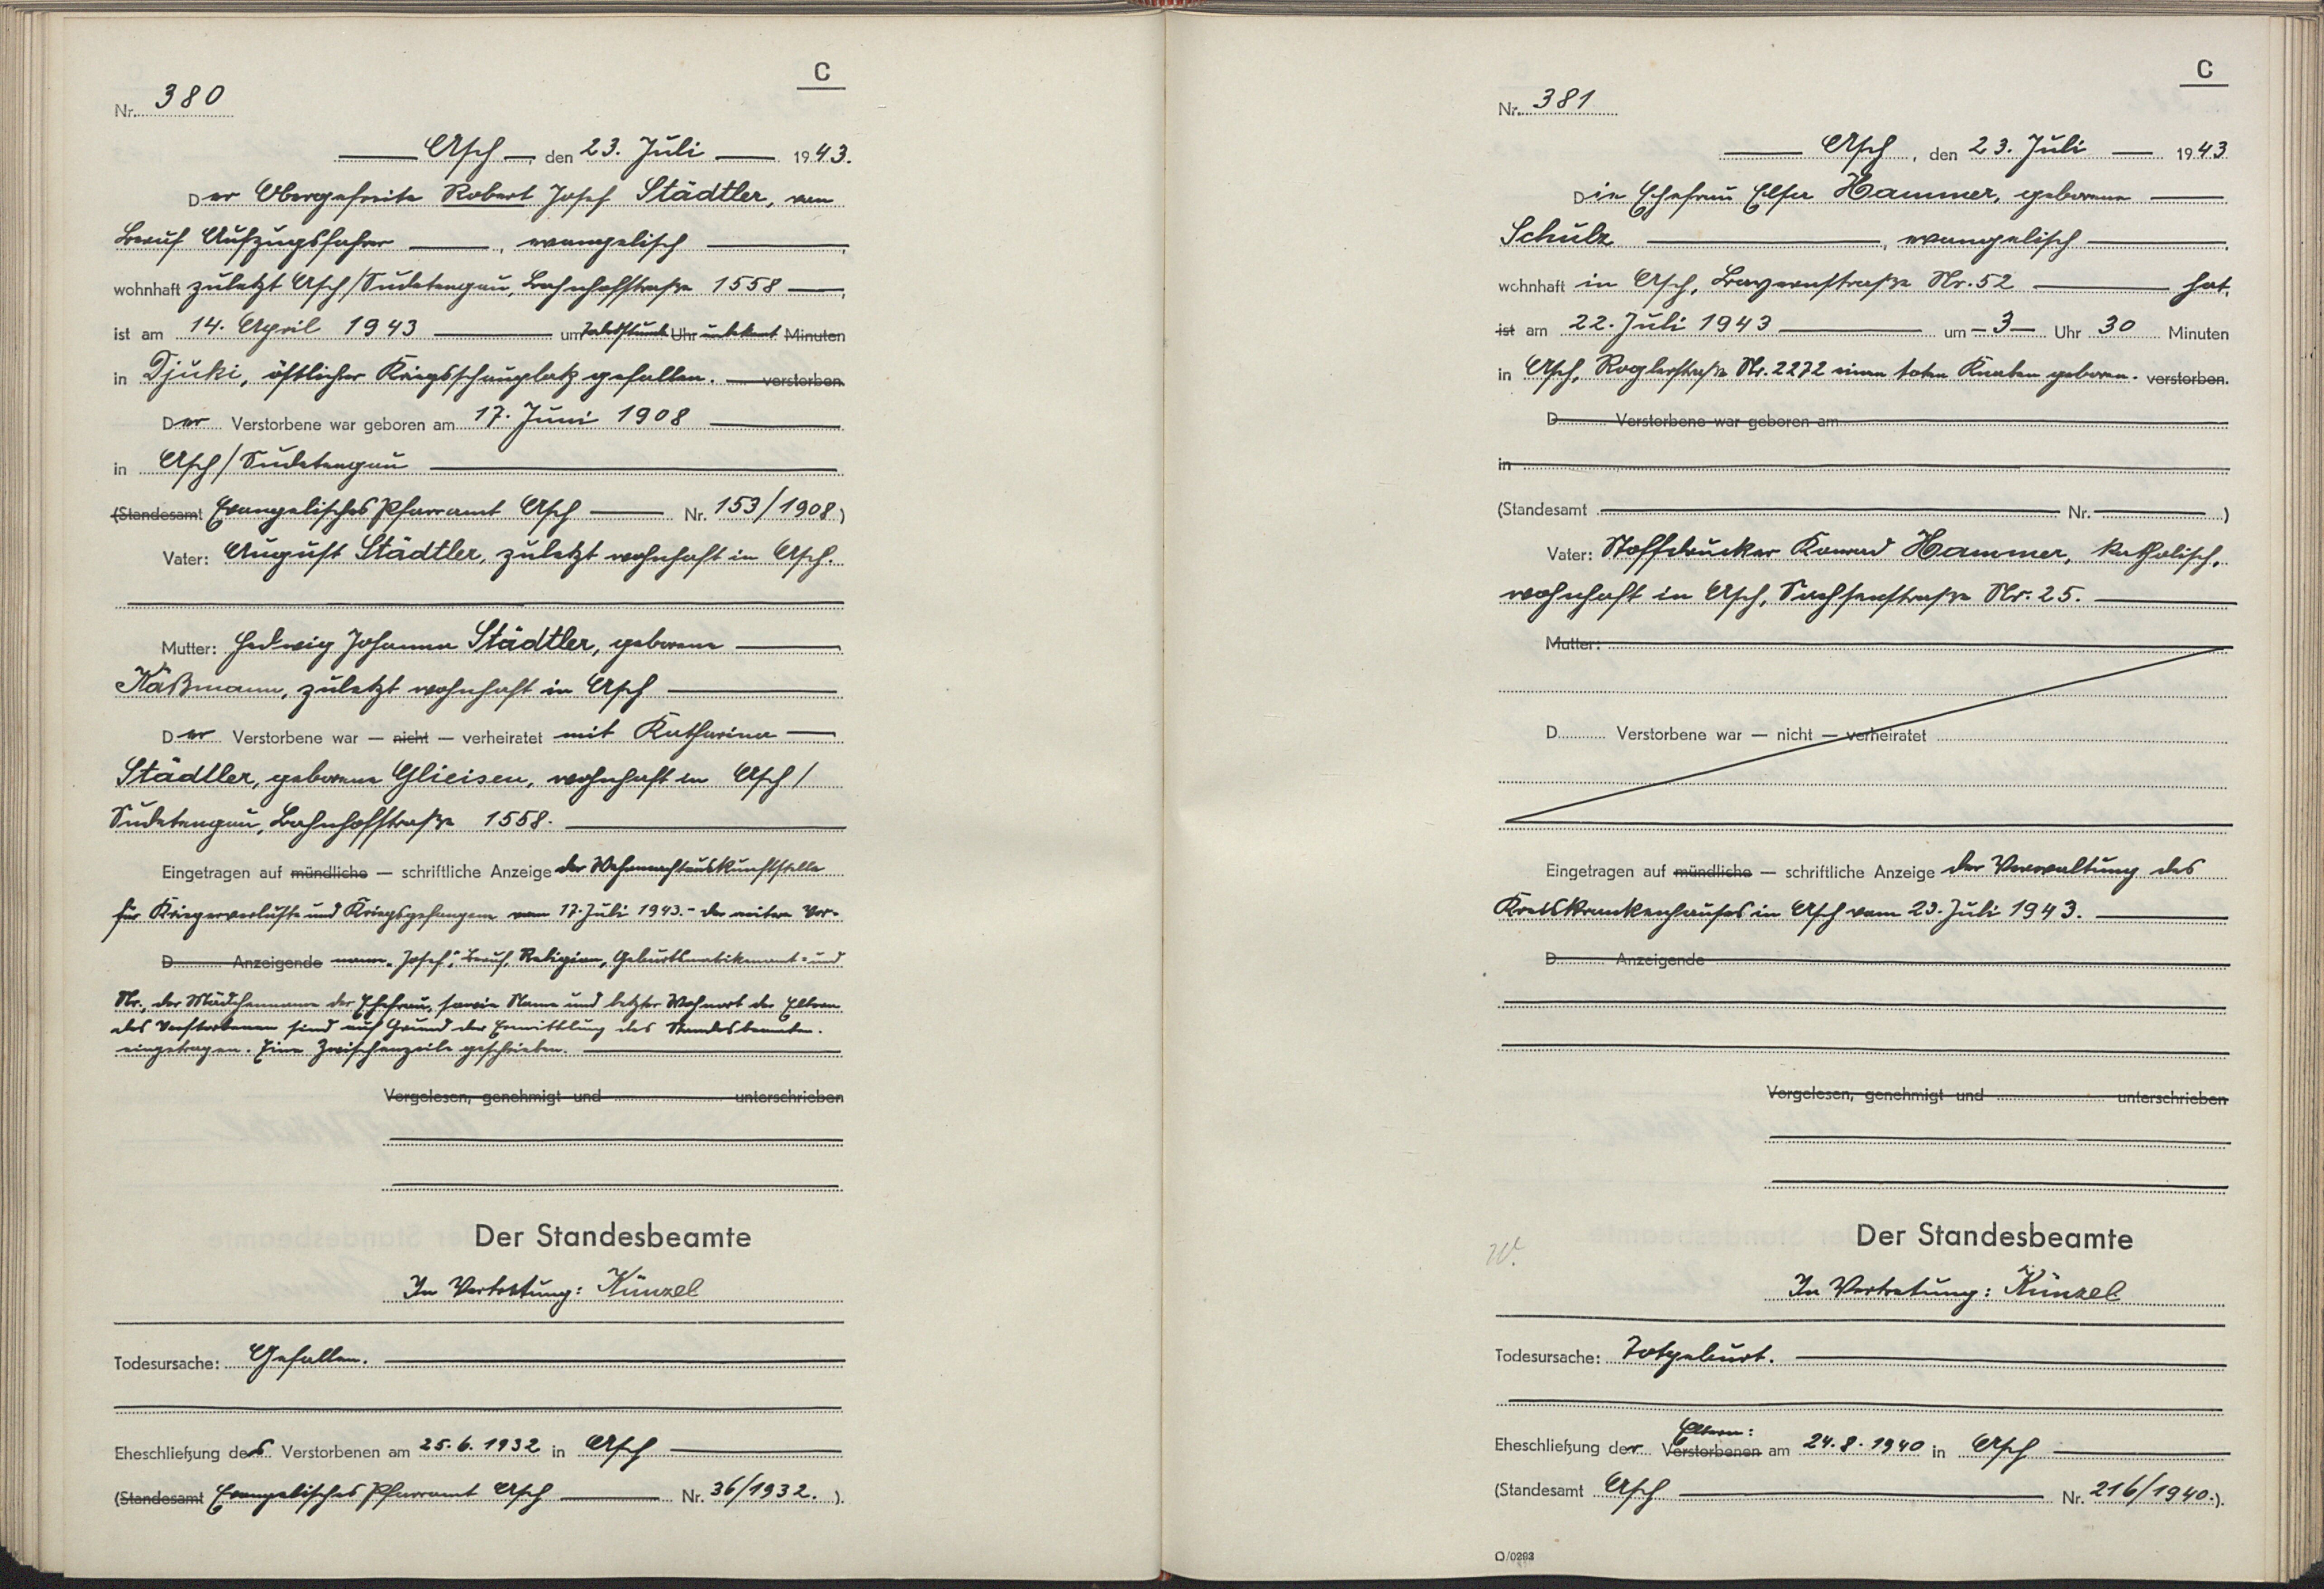 C
Nr. 380
Asch, den 23. Juli 1943.
Der Obergefreite Robert Josef Städtler, von
Beruf Aufzugsfahrer, evangelisch,
wohnhaft zuletzt Asch/Sudetengau, Bahnhofstraße 1558,
ist am 14. April 1943 um Todesstunde Uhr unbekannt Minuten
in Djuki, östlicher Kriegsschauplatz gefallen. verstorben.
Der Verstorbene war geboren am 17. Juni 1908
in Asch/Sudetengau
(Standesamt Evangelisches Pfarramt Asch Nr. 153/1908)
Vater: August Städtler, zuletzt wohnhaft in Asch.
Mutter: Hedwig Johanna Städtler, geborene
Käßmann, zuletzt wohnhaft in Asch
Der Verstorbene war — nicht — verheiratet mit Katharina
Städtler, geborene Glieisen, wohnhaft in Asch/
Sudetengau, Bahnhofstraße 1558.
Eingetragen auf mündliche — schriftliche Anzeige der Wehrmachtauskunftstelle
für Kriegerverluste und Kriegsgefangene vom 17. Juli 1943.- der weitere Vor-
D Anzeigende name „Josef“, Beruf, Religion, Geburtsmatrikenamt- und
Nr., der Mädchenname der Ehefrau, sowie Name und letzter Wohnort der Eltern
des Verstorbenen sind auf Grund der Ermittlung des Standesbeamten.
eingetragen. Eine Zwischenzeile geschrieben.
Vorgelesen, genehmigt und unterschrieben
Der Standesbeamte
In Vertretung: Künzel
Todesursache: Gefallen.
Eheschließung des Verstorbenen am 25.6.1932 in Asch
(Standesamt Evangelisches Pfarramt Asch Nr. 36/1932.).
C
Nr. 381
Asch, den 23. Juli 1943
Die Ehefrau Elsa Hammer, geborene
Schulz, evangelisch,
wohnhaft in Asch, Bayernstraße Nr. 52 hat,
ist am 22. Juli 1943 um 3 Uhr 30 Minuten
in Asch, Roglerstraße Nr. 2272 einen toten Knaben geboren. verstorben.
D Verstorbene war geboren am
in
(Standesamt Nr. )
Vater: Stoffdrucker Konrad Hammer, katholisch,
wohnhaft in Asch, Sachsenstraße Nr. 25.
Mutter:
D Verstorbene war — nicht — verheiratet
Eingetragen auf mündliche — schriftliche Anzeige der Verwaltung des
Kreiskrankenhauses in Asch vom 23. Juli 1943.
D Anzeigende
Vorgelesen, genehmigt und unterschrieben
Der Standesbeamte
In Vertretung: Künzel
Todesursache: Totgeburt.
Eltern:
Eheschließung der Verstorbenen am 24.8.1940 in Asch
(Standesamt Asch Nr. 216/1940.).